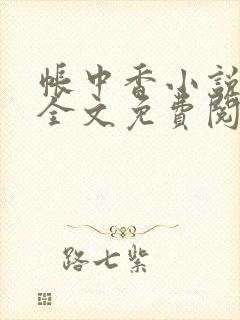 帳中香小說
全文免費閱
路七紫